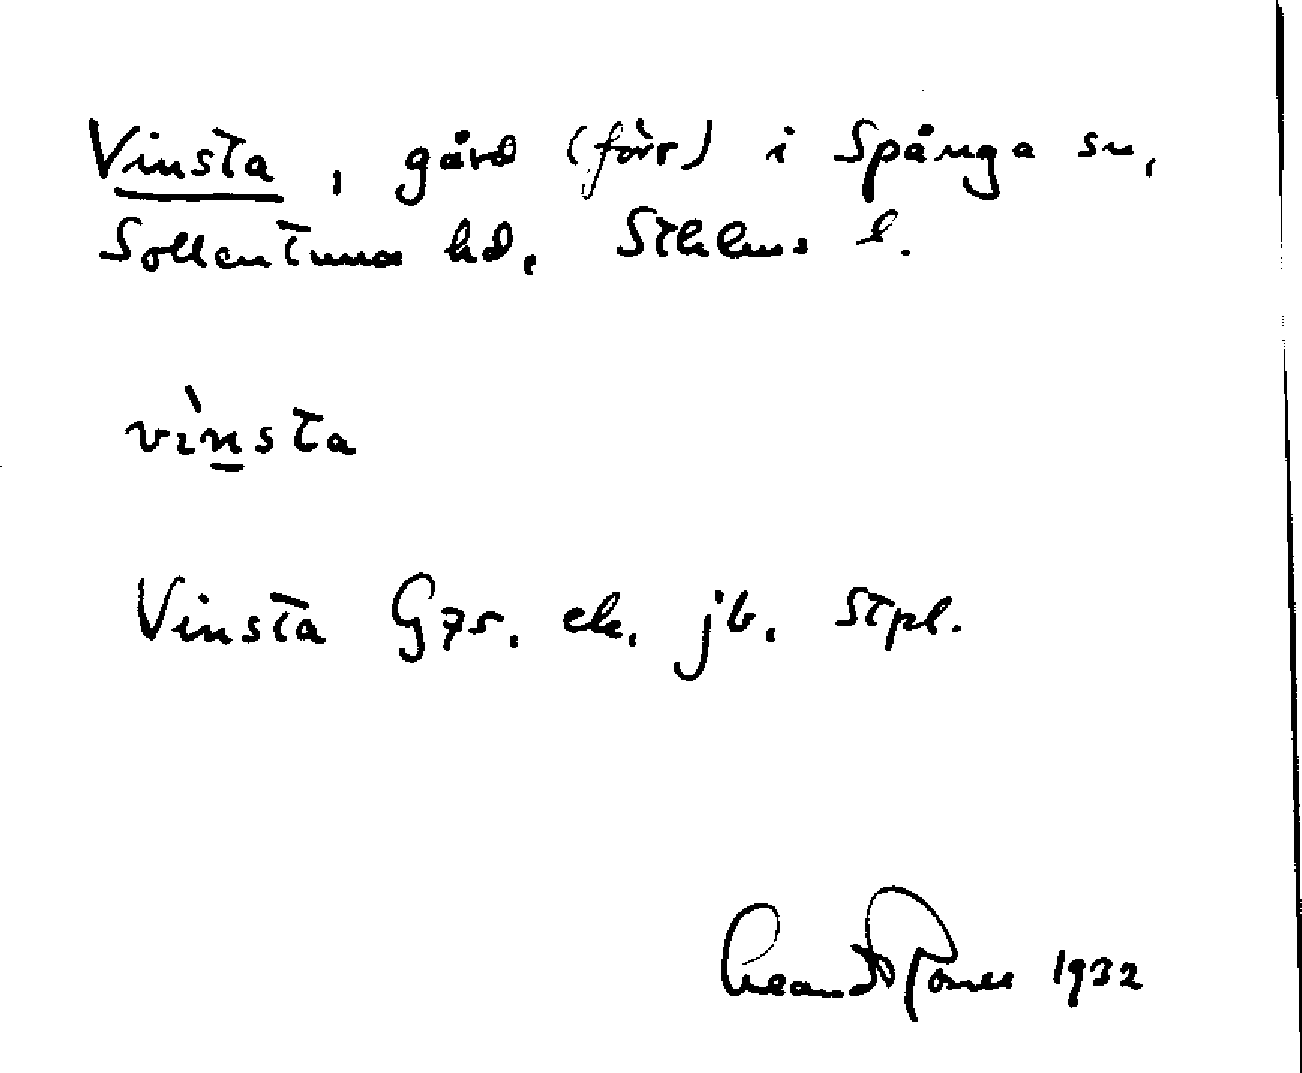 Vinsta, gård (förr) i Spånga sn,
Sollentuna hd, Sthlms l.
vìnsta
Vinsta G75. ek. jb. Stpl.
1932